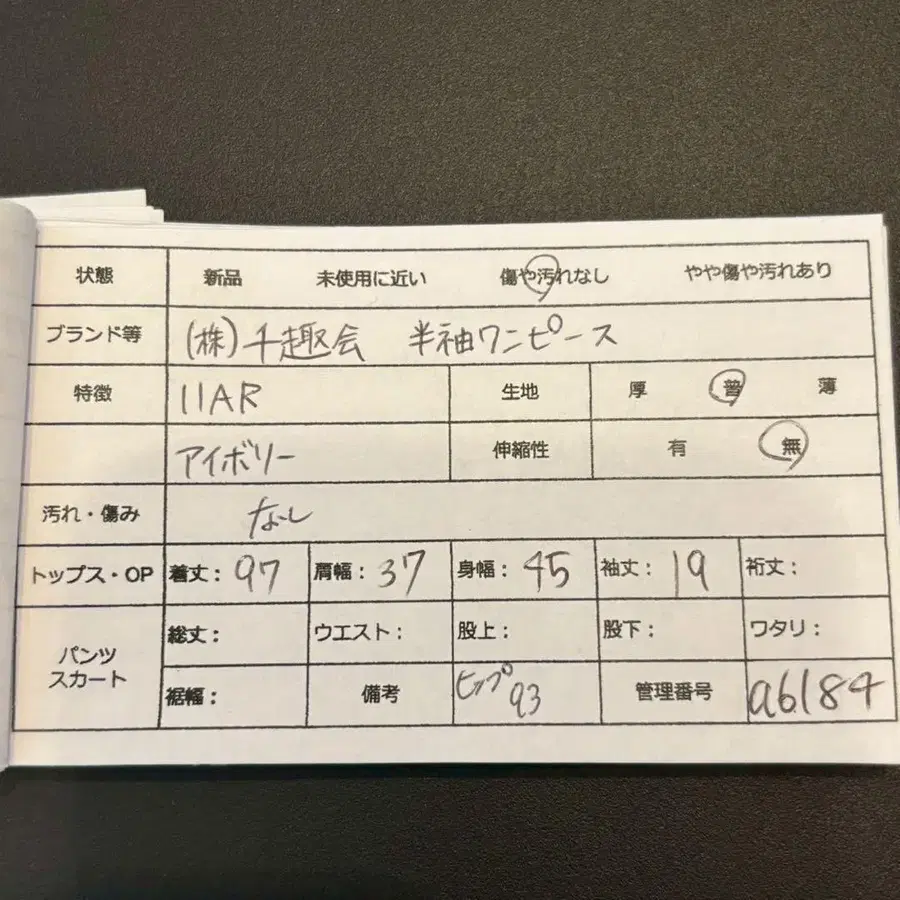 状態 新品 未使用に近い 傷や汚れなし やや傷や汚れあり
ブランド等 (株)千趣会 半袖ワンピース
特徴 11AR 生地 厚 普 薄
アイボリー 伸縮性 有 無
汚れ・傷み なし
トップス・OP 着丈：97 肩幅：37 身幅：45 袖丈：19 裄丈：
パンツ スカート 総丈： ウエスト： 股上： 股下： ワタリ：
裾幅： 備考 ヒップ93 管理番号 a6184